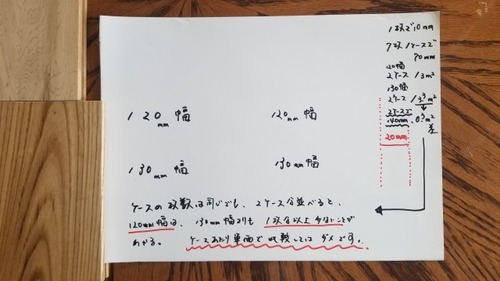 1枚で10mm
7枚1ケースで
70mm
120幅
2ケース 1.3m²
130幅
2ケース
140mm
0.3m²
差
20mm
120mm幅
120mm幅
130mm幅
130mm幅
ケースの枚数は同じでも、2ケース分並べると、
120mm幅は、130mm幅よりも1枚分以上少ないことが
わかる。
ケースあたり単価で比較してはダメです。